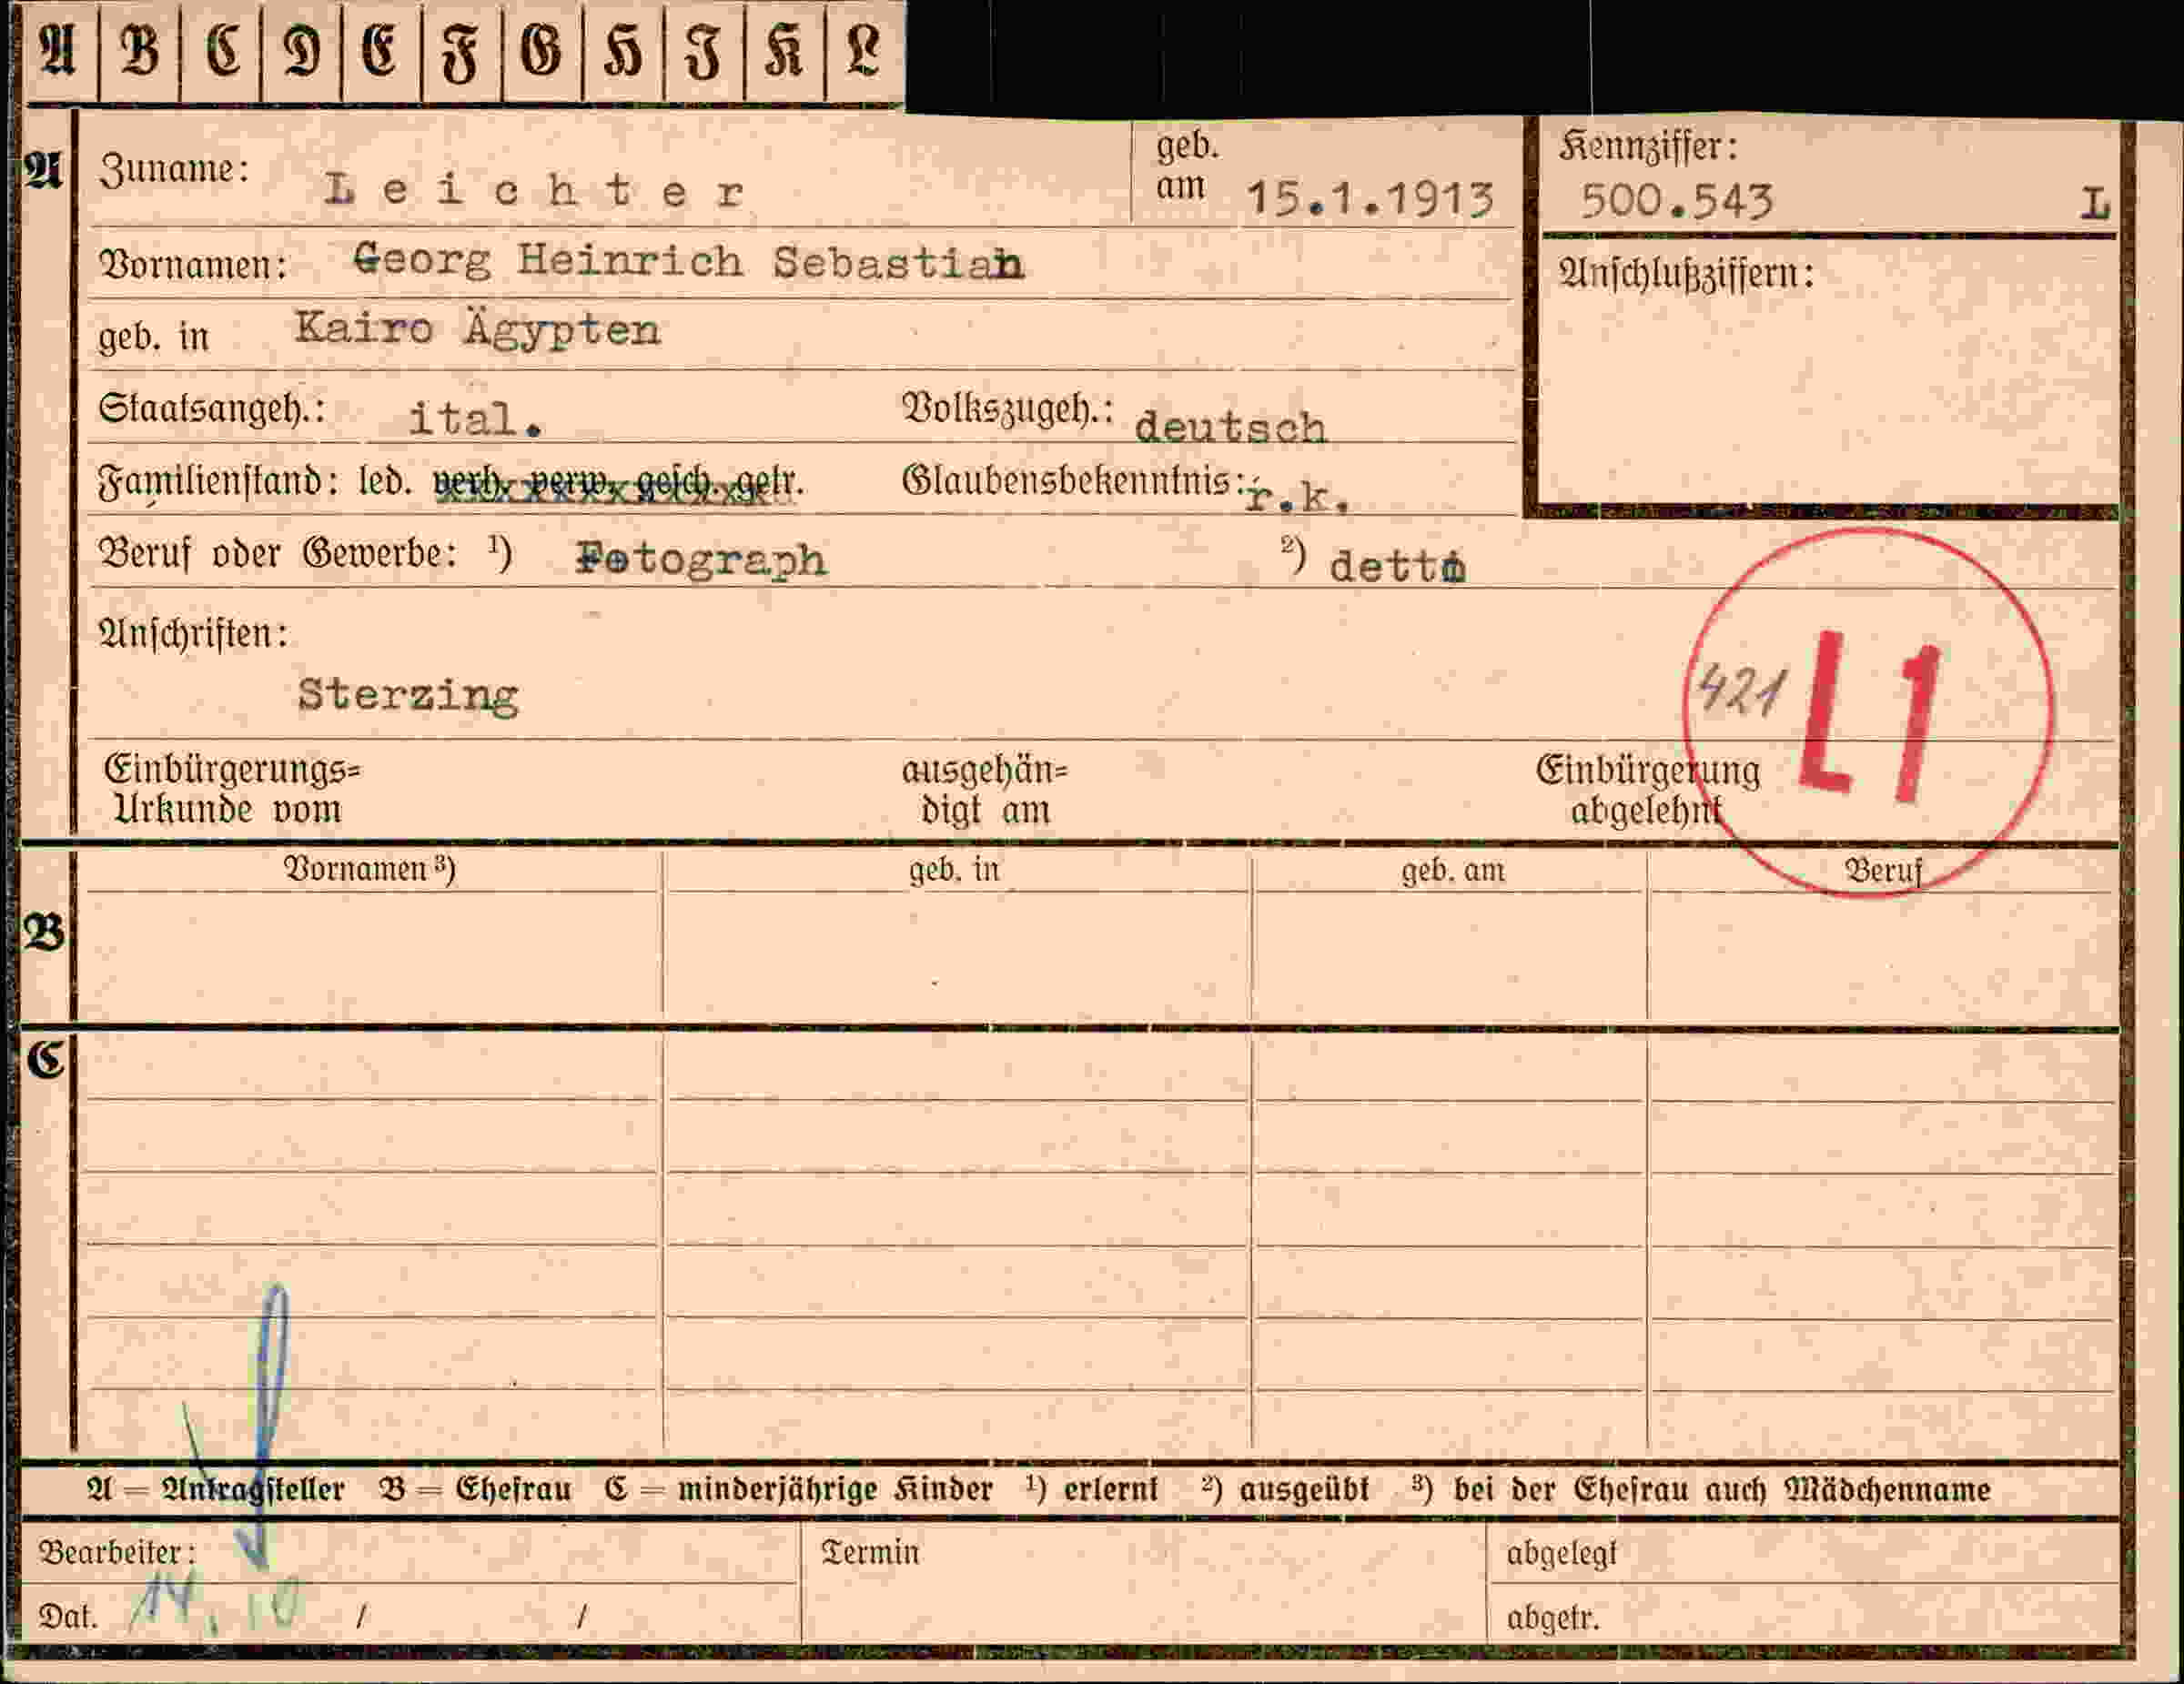 A B C D E F G H J K L
A Zuname: Leichter geb. am 15.1.1913 Kennziffer: 500.543 L
Vornamen: Georg Heinrich Sebastian Anschlußziffern:
geb. in Kairo Ägypten
Staatsangeh.: ital. Volkszugeh.: deutsch
Familienstand: led. verh. verw. gesch. getr. Glaubensbekenntnis: r.k.
Beruf oder Gewerbe: ¹) Fotograph ²) detto
Anschriften:
421 L1
Sterzing
Einbürgerungs= ausgehän= Einbürgerung
Urkunde vom digt am abgelehnt
Vornamen ³) geb. in geb. am Beruf
B
C
A = Antragsteller B = Ehefrau C = minderjährige Kinder ¹) erlernt ²) ausgeübt ³) bei der Ehefrau auch Mädchenname
Bearbeiter: Termin abgelegt
Dat. 14. 10 / / abgetr.